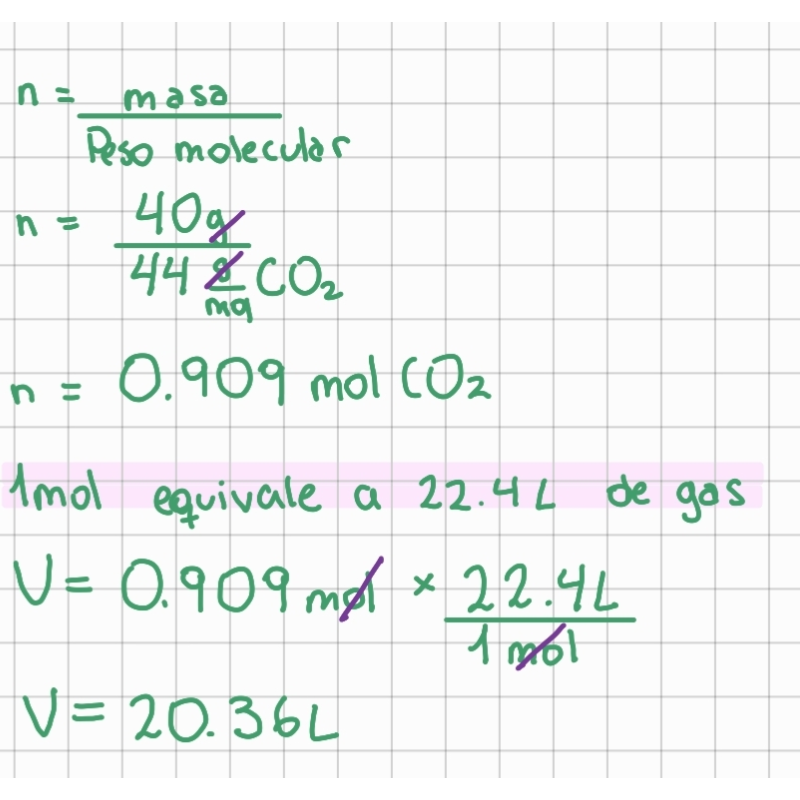 n = masa
Peso molecular
n = 40g
44 g/mol CO₂
n = 0.909 mol CO₂
1mol equivale a 22.4L de gas
V = 0.909 mol × 22.4L
1 mol
V = 20.36L